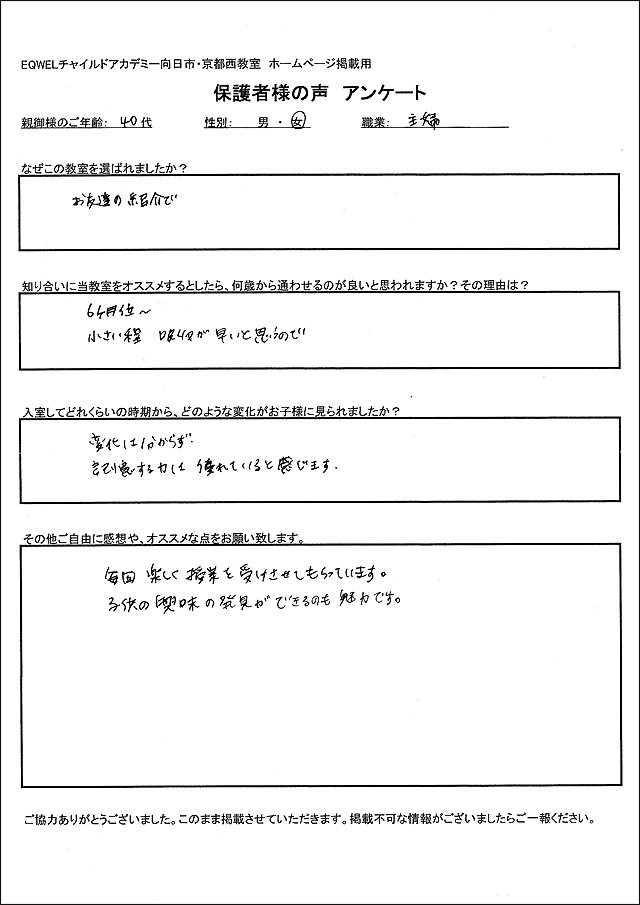 EQWELチャイルドアカデミー向日市・京都西教室 ホームページ掲載用
保護者様の声 アンケート
親御様のご年齢: 40代 性別: 男・女 職業: 主婦
なぜこの教室を選ばれましたか？
お友達の紹介で
知り合いに当教室をオススメするとしたら、何歳から通わせるのが良いと思われますか？その理由は？
6ヶ月位～
小さい程 吸収が早いと思うので
入室してどれくらいの時期から、どのような変化がお子様に見られましたか？
変化は分からず
記憶する力は優れていると感じます.
その他ご自由に感想や、オススメな点をお願い致します。
毎回楽しく授業を受けさせてもらっています。
子供の興味の発見ができるのも魅力です。
ご協力ありがとうございました。このまま掲載させていただきます。掲載不可な情報がございましたらご一報ください。